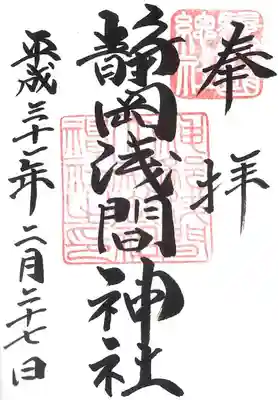 奉拝
静岡浅間神社
平成三十一年二月二十七日